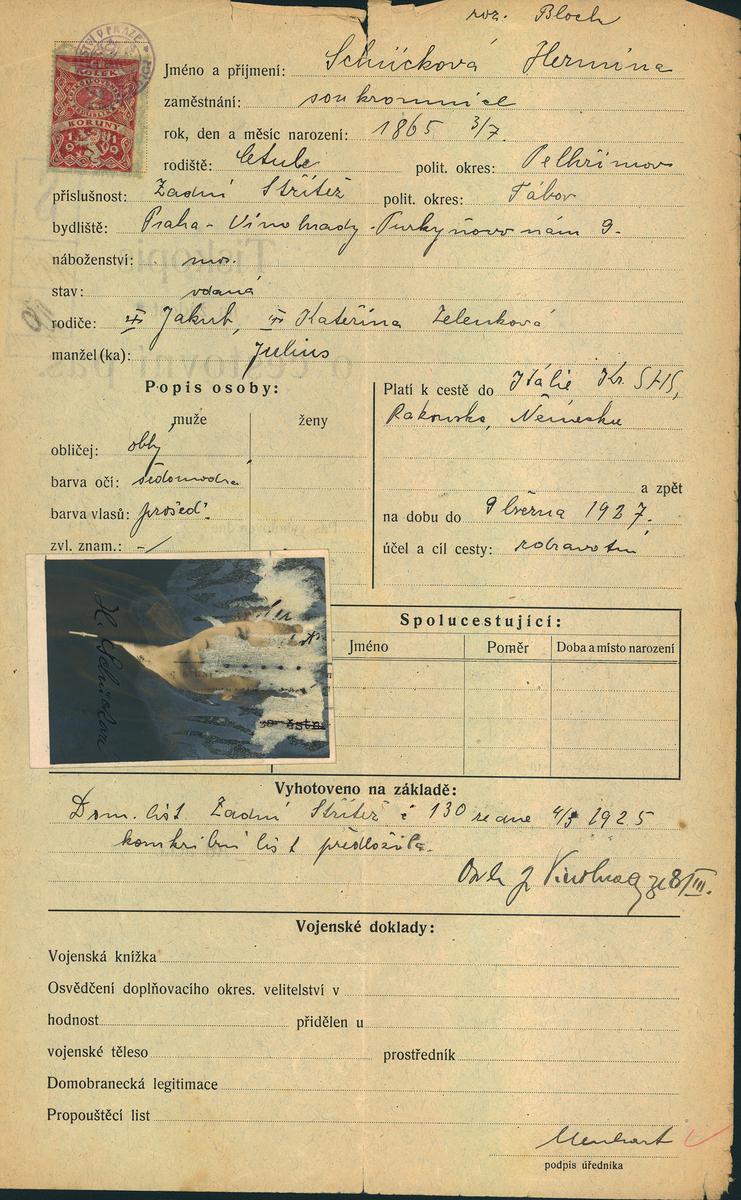 roz. Bloch
Jméno a příjmení: Schücková Hermína
zaměstnání: soukromnice
rok, den a měsíc narození: 1865 3/7.
rodiště: Cetule polit. okres: Pelhřimov
příslušnost: Zadní Střítež polit. okres: Tábor
bydliště: Praha - Vinohrady - Purkyňovo nám 9.
náboženství: mos.
stav: vdaná
rodiče: Jakub, Kateřina Zelenková
manžel (ka): Julius
Popis osoby:
muže ženy
obličej: obly
barva očí: šedomodrá
barva vlasů: prošed.
zvl. znam.: -/
Platí k cestě do Itálie Kr. SHS,
Rakouska, Německa
a zpět
na dobu do 9 března 1927.
účel a cíl cesty: zdravotní
Spolucestující:
Jméno Poměr Doba a místo narození
Vyhotoveno na základě:
Dom. list Zadní Střítež č 130 ze dne 4/3 1925
konskribní list předložila.
Vojenské doklady:
Vojenská knížka
Osvědčení doplňovacího okres. velitelství v
hodnost přidělen u
vojenské těleso prostředník
Domobranecká legitimace
Propouštěcí list
Menhart
podpis úředníka